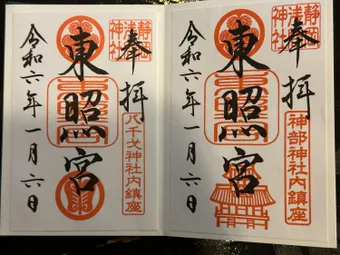 静岡
浅間
神社
奉拝
東照宮
八千戈神社内鎮座
令和六年一月六日
静岡
浅間
神社
奉拝
東照宮
神部神社内鎮座
令和六年一月六日